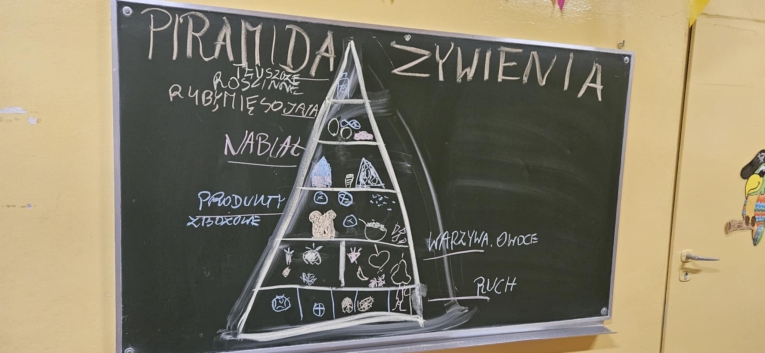 PIRAMIDA ŻYWIENIA
TŁUSZCZE
ROŚLINNE
RYBY, MIĘSO, JAJA
NABIAŁ
PRODUKTY
ZBOŻOWE
WARZYWA, OWOCE
RUCH